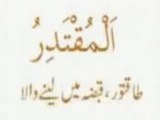 اَلْمُقْتَدِرُ
طاقتور، قبضہ میں لینے والا